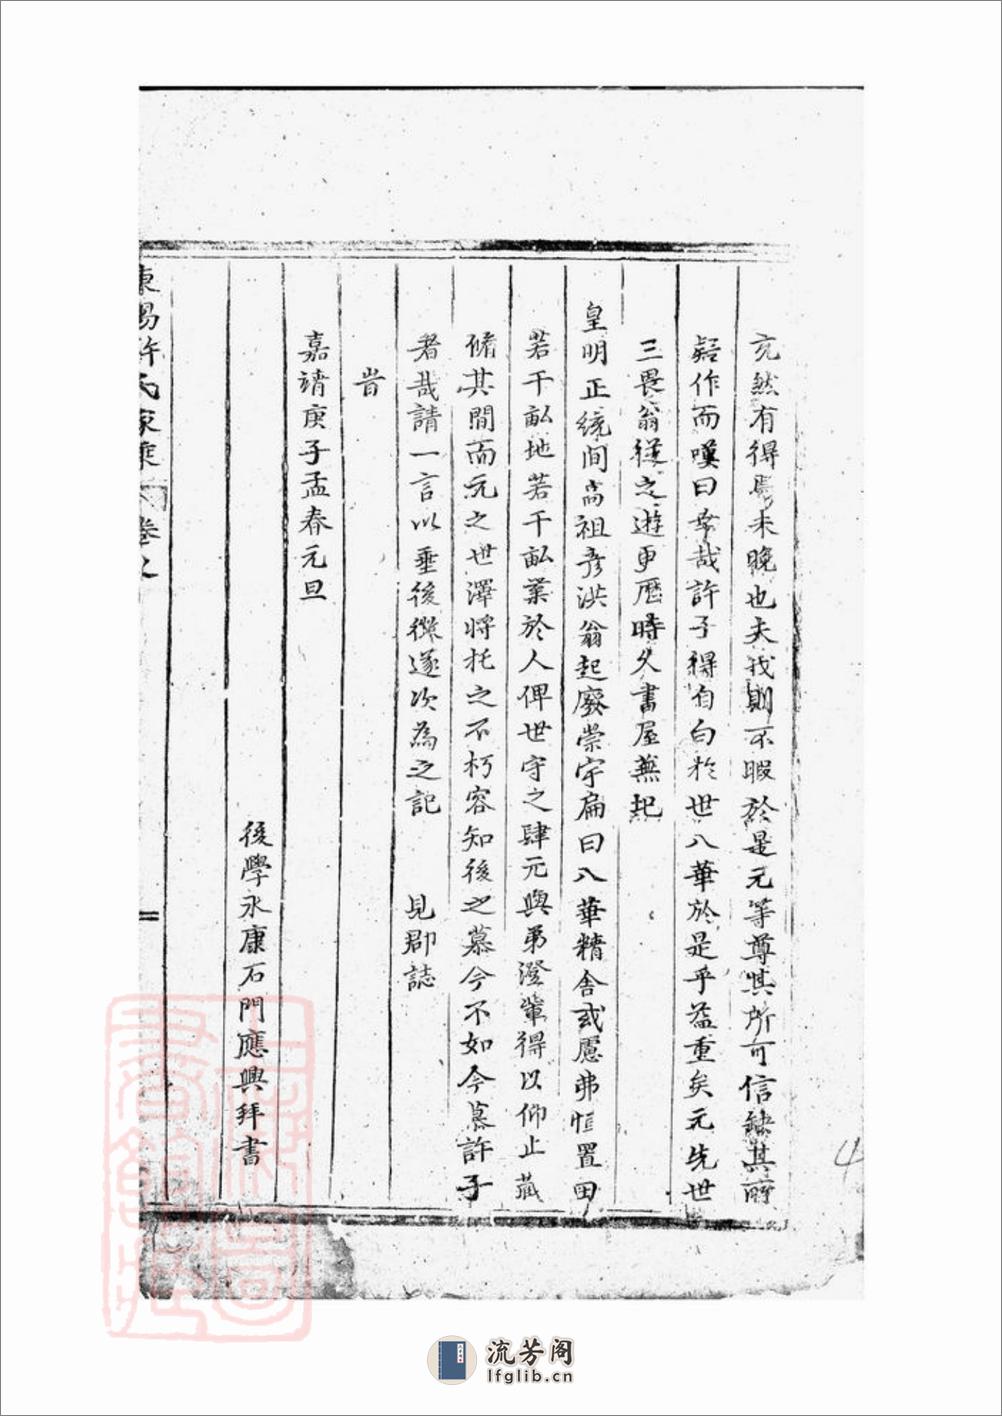 充然有得焉未晚也夫我則不暇於是元等尊其所可信缺其所
疑作而嘆曰幸哉許子得自白於世八華於是乎益重矣元先世
三畏翁從之遊更歷時久書屋蕪圯
皇明正統間高祖彥洪翁起廢崇宇扁曰八華精舍或慮弗恒置田
若干畝地若干畝業於人俾世守之肆元與弟澄輩得以仰止藏
脩其間而元之世澤將托之不朽容知後之慕今不如今慕許子
者哉請一言以垂後徵遂次為之記 見郡誌
旹
嘉靖庚子孟春元旦
後學永康石門應興拜書
東昜許氏家乘 卷之
4
流芳阁
lfglib.cn